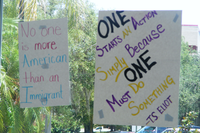 No one
is more
American
than an
Immigrant
ONE
STARTS AN ACTION
Simply Because
ONE
MUST DO
SOMETHING
TS ELIOT